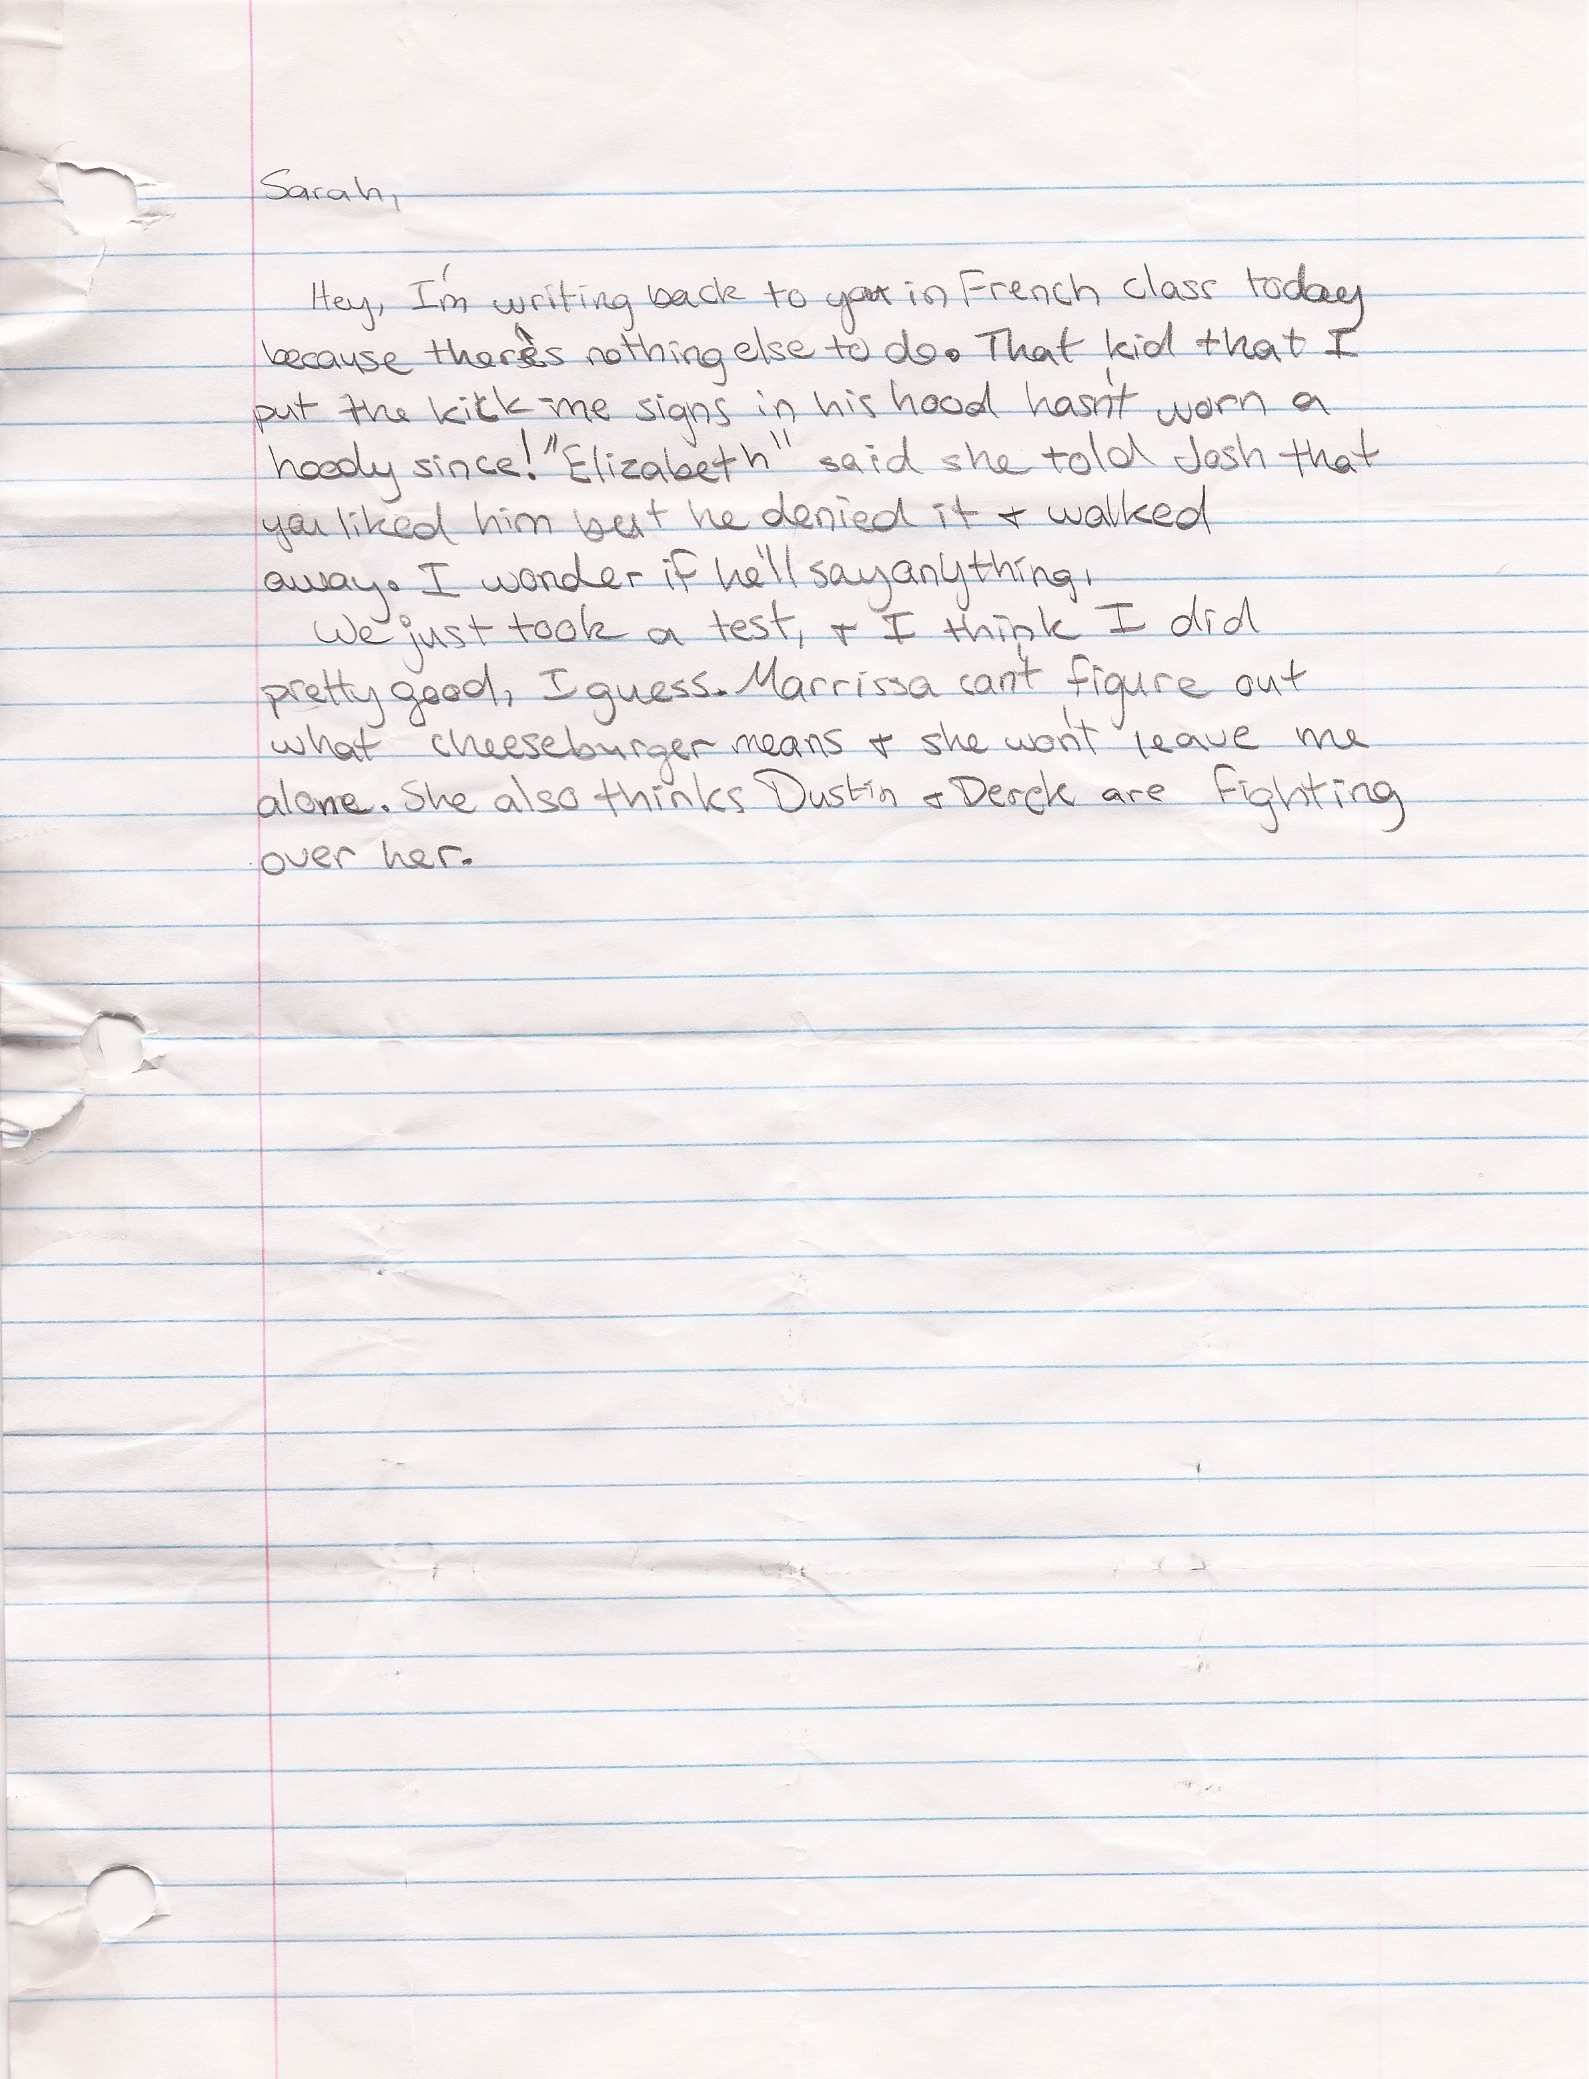 Sarah,
Hey, I'm writing back to you in French class today
because there's nothing else to do. That kid that I
put the kick me signs in his hood hasn't worn a
hoody since! "Elizabeth" said she told Josh that
you liked him but he denied it + walked
away. I wonder if he'll say anything.
We just took a test, + I think I did
pretty good, I guess. Marrissa can't figure out
what cheeseburger means + she won't leave me
alone. She also thinks Dustin + Derek are fighting
over her.